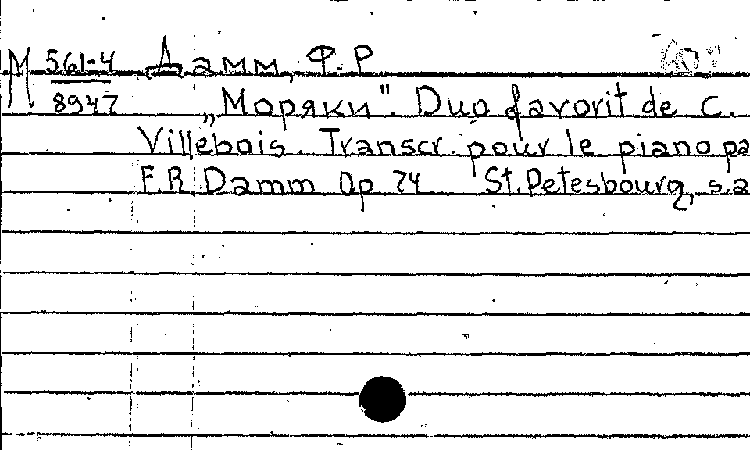 М 561-4 Дамм, Ф.Р
8947 „Моряки". Duo favorit de C.
Villebois. Transcr. pour le piano pa
F.R. Damm Op 74 St. Petesbourg, s.a